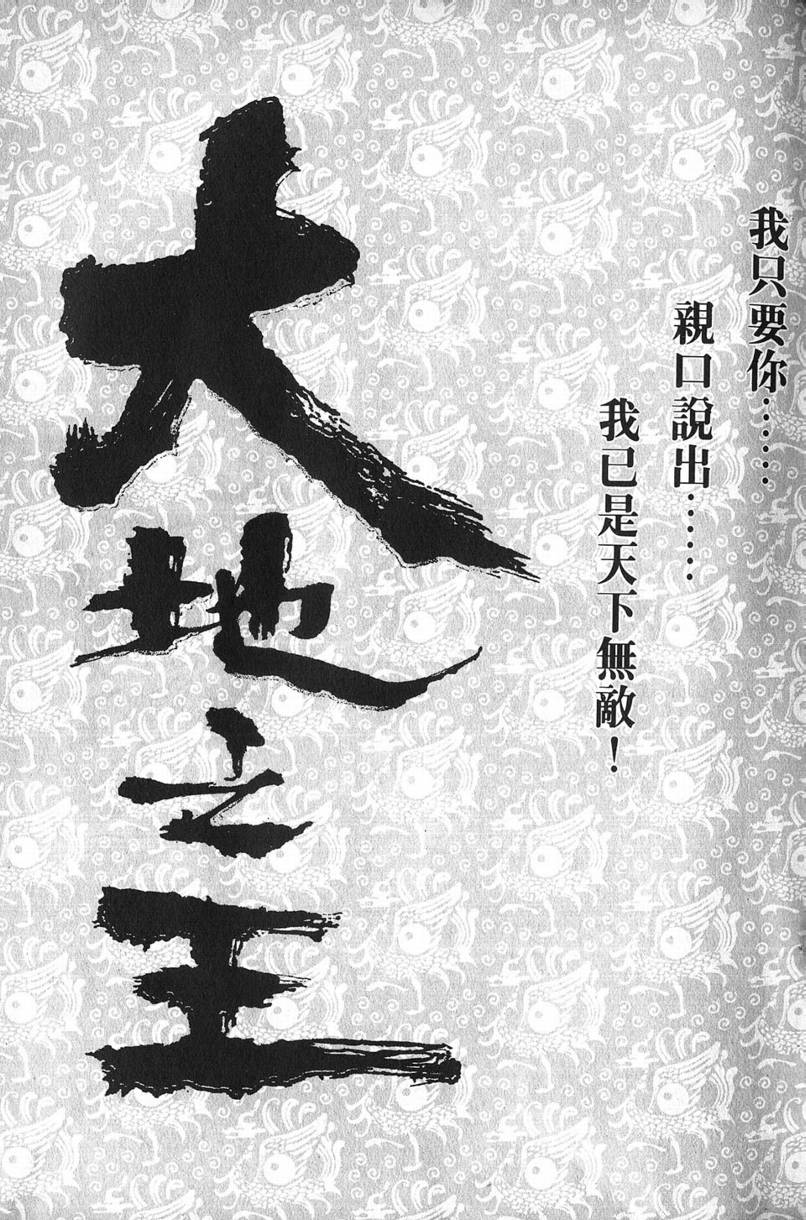 我只要你……
親口說出……
我已是天下無敵！
大地之王